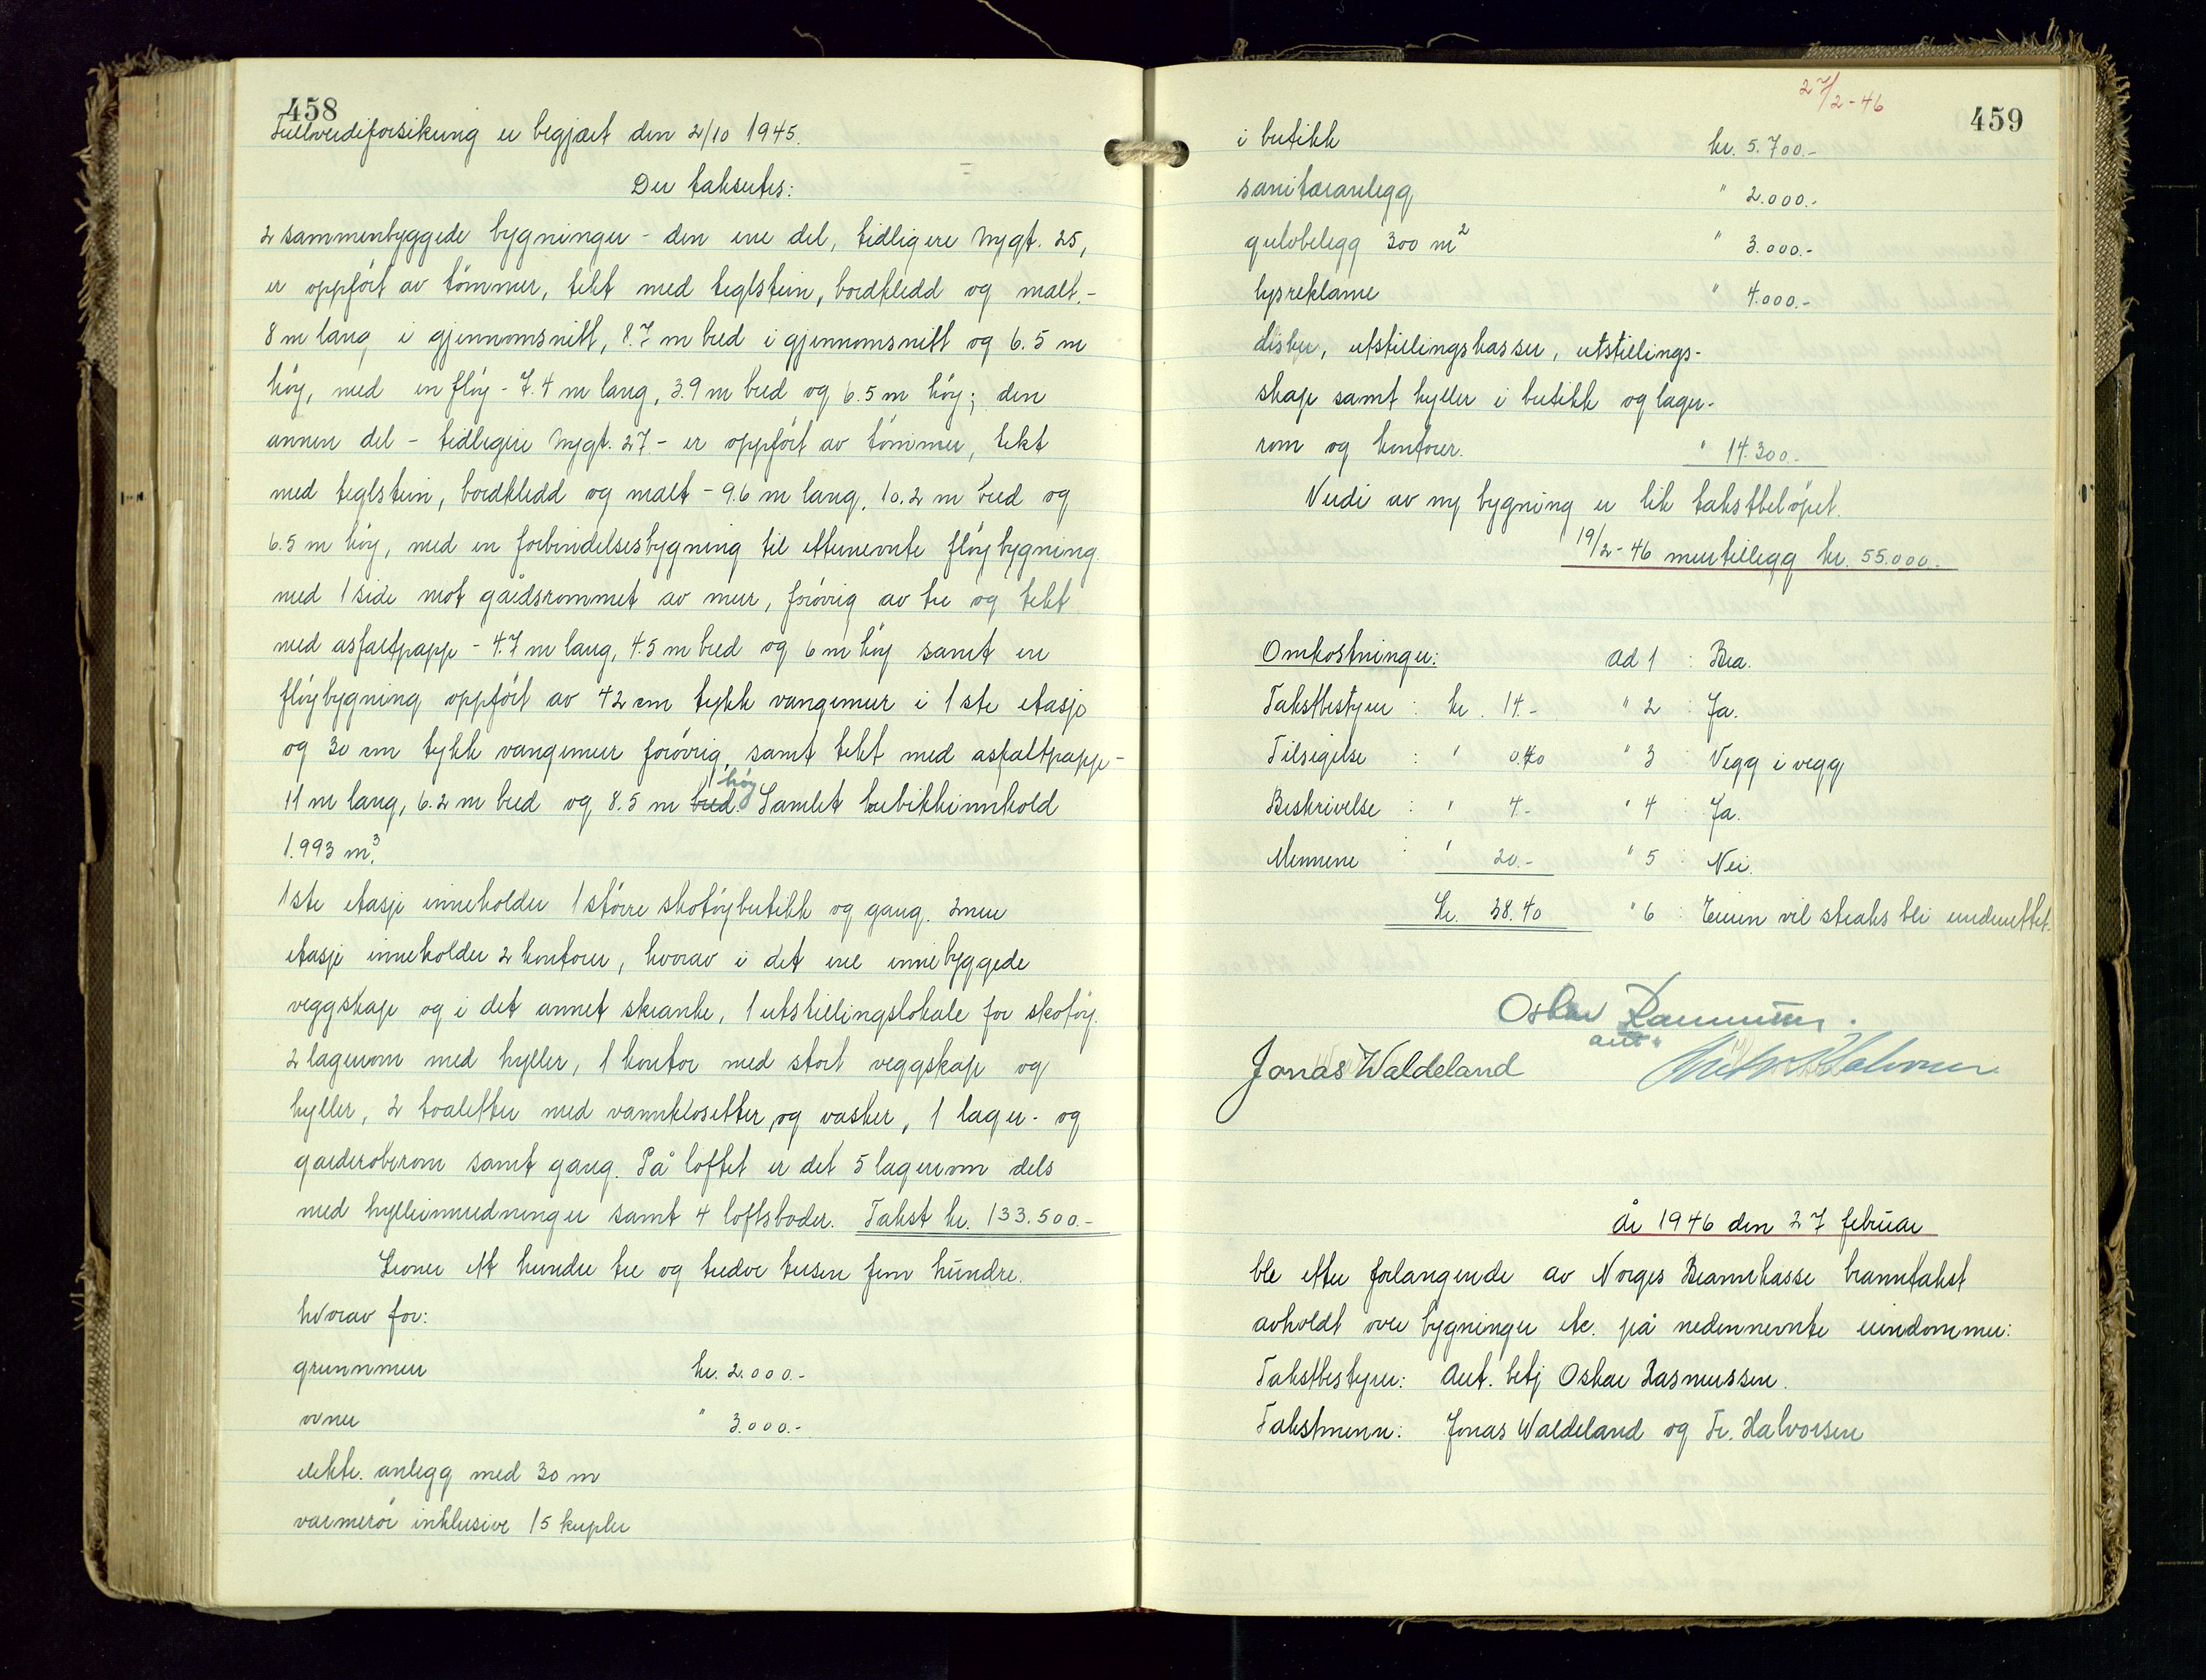 458
Fullverdiforsikring er begjært den 2/10 1945.
Der takseres:
2 sammenbyggede bygninger - den ene del, tidligere Nygt. 25,
er oppført av tømmer, tekt med teglstein, bordkledd og malt.-
8 m lang i gjennomsnitt, 8.7 m bred i gjennomsnitt og 6.5 m
høy, med en fløy - 7.4 m lang, 3.9 m bred og 6.5 m høy; den
annen del - tidligere Nygt. 27.- er oppført av tømmer, tekt
med teglstein, bordkledd og malt - 9.6 m lang, 10.2 m bred og
6.5 m høy, med en forbindelsesbygning til etternevnte fløybygning.
med 1 side mot gårdsrommet av mur, forøvrig av tre og tekt
med asfaltpapp - 4.7 m lang, 4.5 m bred og 6 m høy samt en
fløybygning oppført av 42 cm tykk vangemur i 1ste etasje
og 30 cm tykk vangemur forøvrig, samt tekt med asfaltpapp -
høy
11 m lang, 6.2 m bred og 8.5 m bred. Samlet kubikkinnhold
1.993 m³.
1ste etasje inneholder 1 større skotøybutikk og gang. 2nen
etasje inneholder 2 kontorer, hvorav i det ene innebyggede
veggskap og i det annet skranke, 1 utstillingslokale for skotøy.
2 lagerrom med hyller, 1 kontor med stort veggskap og
hyller, 2 toaletter med vannklosetter, og vasker, 1 lager- og
garderoberom samt gang. På loftet er det 5 lagerrom dels
med hylleinnredninger samt 4 loftsboder. Takst kr. 133.500.-
Kroner ett hundre tre og tredve tusen fem hundre.
hvorav for:
grunnmur kr. 2.000.-
ovner " 3.000.-
elektr. anlegg med 30 m
varmerør inklusive 15 kupler
27/2-46
459
i butikk kr. 5.700.-
sanitæranlegg " 2.000.-
gulvbelegg 300 m² " 3.000.-
lysreklame " 4.000.-
disker, utstillingskasser, utstillings-
skap samt hyller i butikk og lager-
rom og kontorer. " 14.300.-
Verdi av ny bygning er lik takstbeløpet.
19/2-46 mertillegg kr. 55.000.-
Omkostninger: ad 1 : Bra.
Takstbestyrer : kr. 14.- " 2 : Ja.
Tilsigelse : " 0.40 " 3 : Vegg i vegg
Beskrivelse : " 4.- " 4 : Ja.
Mennene : " 20.- " 5 : Nei.
Kr. 38.40 " 6 : Eieren vil straks bli underrettet.
Oskar Rasmussen.
aut.
Jonas Waldeland
Halvorsen
År 1946 den 27 februar
ble etter forlangende av Norges Brannkasse branntakst
avholdt over bygninger etc. på nedennevnte eiendommer:
Takstbestyrer: Aut. betj Oskar Rasmussen.
Takstmenn: Jonas Waldeland og Fr. Halvorsen